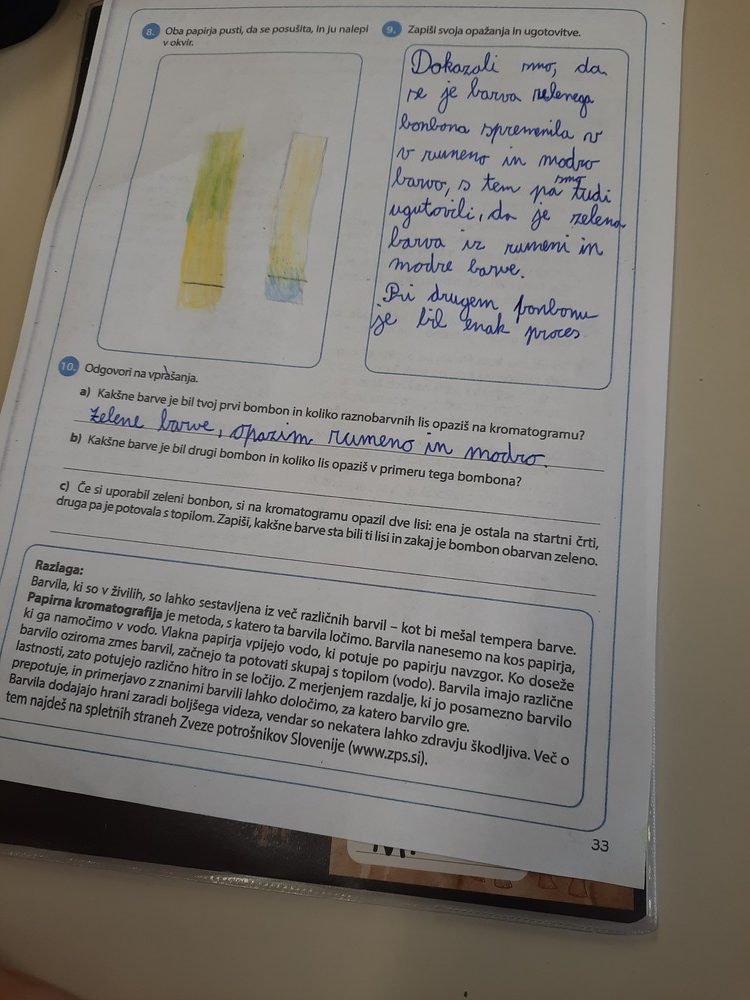 8. Oba papirja pusti, da se posušita, in ju nalepi
v okvir.
9. Zapiši svoja opažanja in ugotovitve.
Dokazali smo, da
se je barva zelenega
bonbona spremenila v
v rumeno in modro
barvo, s tem pa smo tudi
ugutovili, da je zelena
barva iz rumeni in
modre barve.
Pri drugem bonbonu
je bil enak proces
10. Odgovori na vprašanja.
a) Kakšne barve je bil tvoj prvi bombon in koliko raznobarvnih lis opaziš na kromatogramu?
Zelene barve, opazim rumeno in modro.
b) Kakšne barve je bil drugi bombon in koliko lis opaziš v primeru tega bombona?
c) Če si uporabil zeleni bonbon, si na kromatogramu opazil dve lisi: ena je ostala na startni črti,
druga pa je potovala s topilom. Zapiši, kakšne barve sta bili ti lisi in zakaj je bombon obarvan zeleno.
Razlaga:
Barvila, ki so v živilih, so lahko sestavljena iz več različnih barvil – kot bi mešal tempera barve.
Papirna kromatografija je metoda, s katero ta barvila ločimo. Barvila nanesemo na kos papirja,
ki ga namočimo v vodo. Vlakna papirja vpijejo vodo, ki potuje po papirju navzgor. Ko doseže
barvilo oziroma zmes barvil, začnejo ta potovati skupaj s topilom (vodo). Barvila imajo različne
lastnosti, zato potujejo različno hitro in se ločijo. Z merjenjem razdalje, ki jo posamezno barvilo
prepotuje, in primerjavo z znanimi barvili lahko določimo, za katero barvilo gre.
Barvila dodajajo hrani zaradi boljšega videza, vendar so nekatera lahko zdravju škodljiva. Več o
tem najdeš na spletnih straneh Zveze potrošnikov Slovenije (www.zps.si).
33